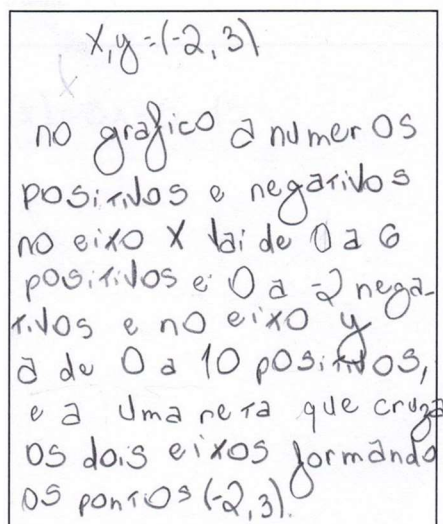 x,y=(-2,3)
no grafico a numeros
positivos e negativos
no eixo x vai de 0 a 6
positivos e 0 a -2 nega-
tivos e no eixo y
a de 0 a 10 positivos,
e a uma reta que cruza
os dois eixos formando
os pontos (-2,3).